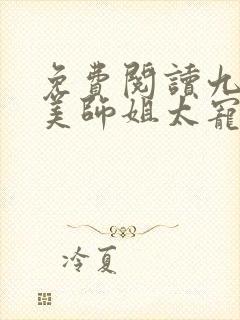 免費閱讀九
美師姐太寵
冷夏